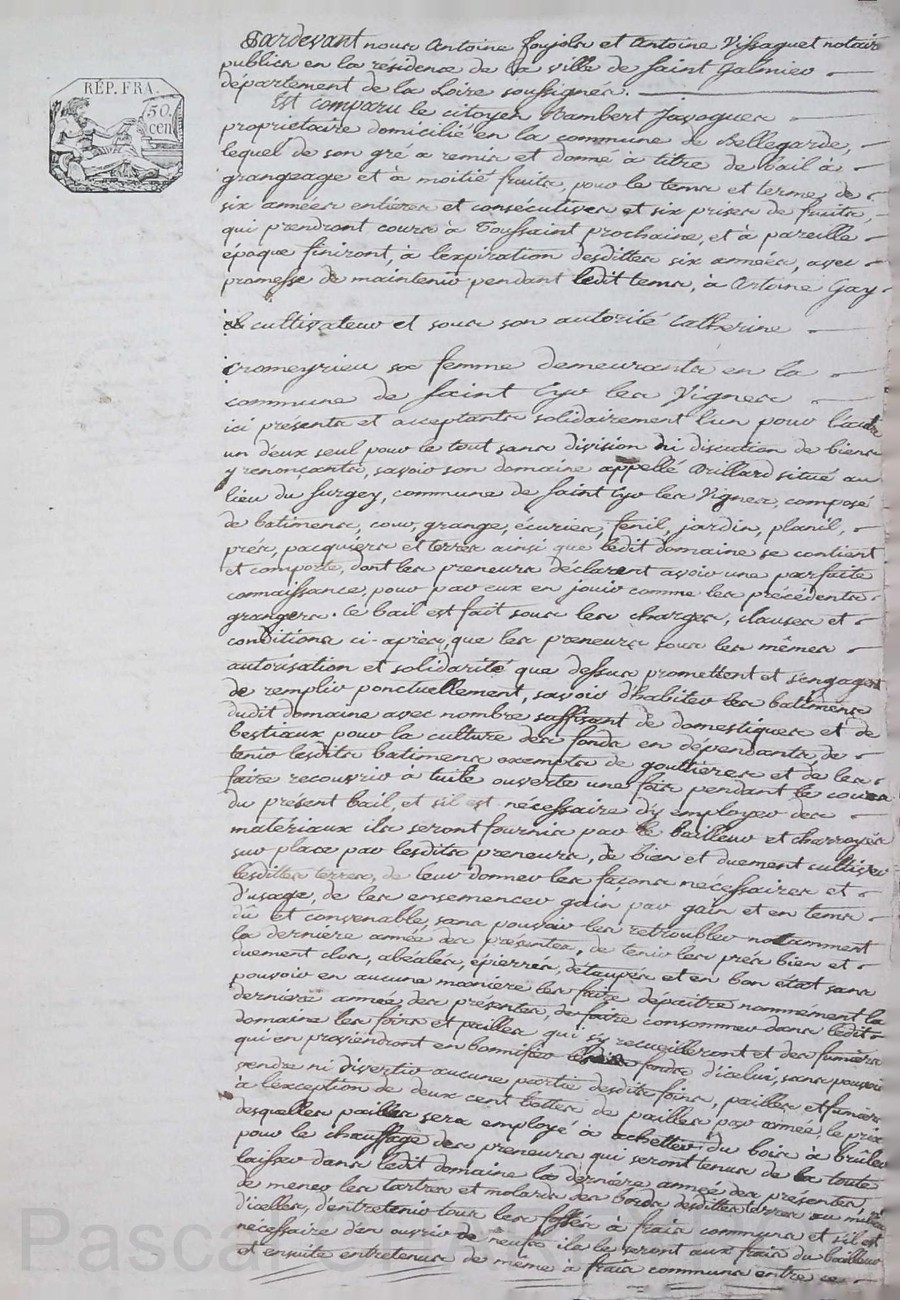 RÉP. FRA.
50.
cen
Pardevant nous Antoine Foujols et Antoine Vissaguet notair
publics en la résidence de la ville de Saint Galmier
département de la Loire soussignés.
Est comparu le citoyen Rambert Javogues
propriétaire domicilié en la commune de Bellegarde,
lequel de son gré a remis et donné à titre de bail à
grangeage et à moitié fruits, pour le tems et terme de
six années entières et consécutives et six prises de fruits,
qui prendront cours à Toussaint prochaine, et à pareille
époque finiront, à l'expiration desdittes six années, avec
promesse de maintenir pendant ledit tems, à Antoine Gay
cultivateur et sous son autorité Catherine
Cromeyrieu sa femme demeurants en la
commune de Saint Cyr les Vignes
ici présents et acceptants solidairement l'un pour l'autre
un d'eux seul pour le tout sans division ni discution de biens
y renonçants, savoir son domaine appellé Brillard situé au
lieu du Surgey, commune de Saint Cyr les Vignes, composé
de batimens, cour, grange, écuries, fenil, jardin, planil,
prés, pacquiers et terres ainsi que ledit domaine se contient
et comporte, dont les preneurs déclarent avoir une parfaite
connaissance, pour par eux en jouir comme les précédents
grangers. Ce bail est fait sous les charges, clauses et
conditions ci-après, que les preneurs sous les mêmes
autorisation et solidarité que dessus promettent et s'engagent
de remplir ponctuellement, savoir d'habiter les batimens
dudit domaine avec nombre suffisant de domestiques et de
bestiaux pour la culture des fonds en dépendants, de
tenir lesdits batimens exempts de gouttières et de les
faire recouvrir à tuile ouverte une fois pendant le cours
du présent bail, et s'il est nécessaire d'y employer des
matériaux ils seront fournis par le bailleur et charroyés
sur place par lesdits preneurs, de bien et duement cultiver
lesdittes terres, de leur donner les façons nécessaires et
d'usage, de les ensemencer gain par gain et en tems
dû et convenable, sans pouvoir les retroubler notamment
la dernière année des présentes, de tenir les prés bien et
duement clos, abéalés, épierrés, détaupés et en bon état sans
pouvoir en aucune manière les faire dépaitre nommément la
dernière année des présentes, de faire consommer dans ledit
domaine les foins et pailles qui s'y recueilleront et des fumiers
qui en proviendront en bonnifier fonds d'icelui, sans pouvoir
vendre ni divertir aucune partie desdits foins, pailles et fumiers
à l'exception de deux cent bottes de pailles par année, le prix
desquelles pailles sera employé à achetter du bois à brûler
pour le chauffage des preneurs qui seront tenus de la toute
laisser dans ledit domaine la dernière année des présentes,
de mener les tartres et molards des bords desdittes terres au milieu
d'icelles, d'entretenir tous les fossés à frais communs et s'il est
nécessaire d'en ouvrir de neufs ils le seront aux frais du bailleur
et ensuite entretenus de même à frais communs entre ce